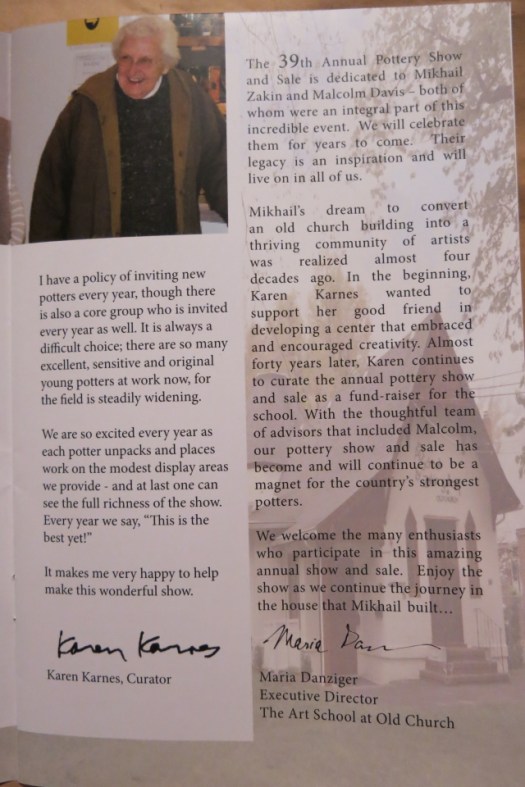 I have a policy of inviting new
potters every year, though there
is also a core group who is invited
every year as well. It is always a
difficult choice; there are so many
excellent, sensitive and original
young potters at work now, for
the field is steadily widening.
We are so excited every year as
each potter unpacks and places
work on the modest display areas
we provide - and at last one can
see the full richness of the show.
Every year we say, “This is the
best yet!”
It makes me very happy to help
make this wonderful show.
Karen Karnes
Karen Karnes, Curator
The 39th Annual Pottery Show
and Sale is dedicated to Mikhail
Zakin and Malcolm Davis – both of
whom were an integral part of this
incredible event. We will celebrate
them for years to come. Their
legacy is an inspiration and will
live on in all of us.
Mikhail’s dream to convert
an old church building into a
thriving community of artists
was realized almost four
decades ago. In the beginning,
Karen Karnes wanted to
support her good friend in
developing a center that embraced
and encouraged creativity. Almost
forty years later, Karen continues
to curate the annual pottery show
and sale as a fund-raiser for the
school. With the thoughtful team
of advisors that included Malcolm,
our pottery show and sale has
become and will continue to be a
magnet for the country’s strongest
potters.
We welcome the many enthusiasts
who participate in this amazing
annual show and sale. Enjoy the
show as we continue the journey in
the house that Mikhail built…
Maria
Maria Danziger
Executive Director
The Art School at Old Church